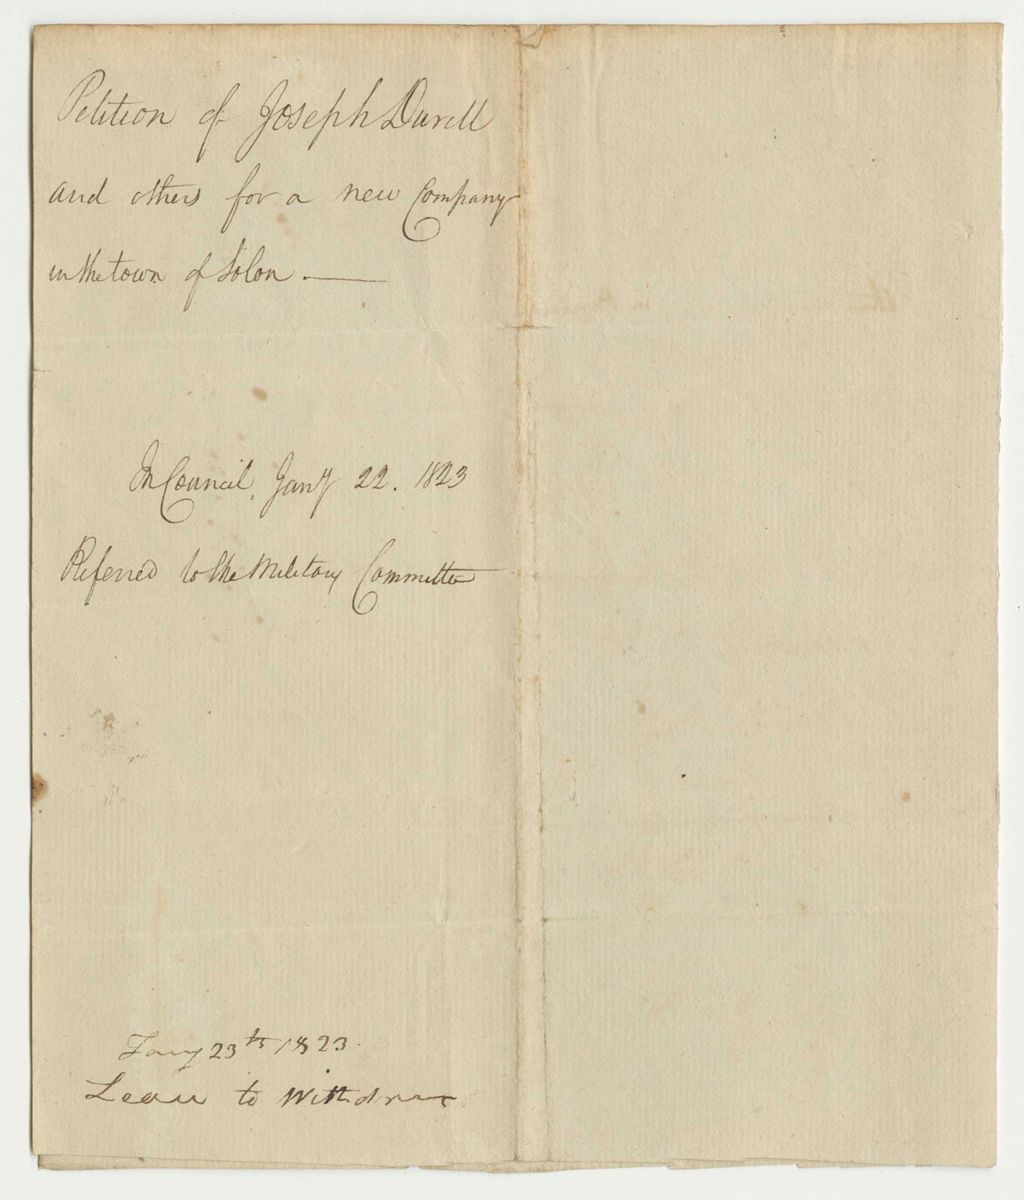 Petition of Joseph Durell
and others for a new Company
in the town of Solon
In Council, Jany 22. 1823
Referred to the Military Committee
Jany 23th 1823.
Leave to Withdraw